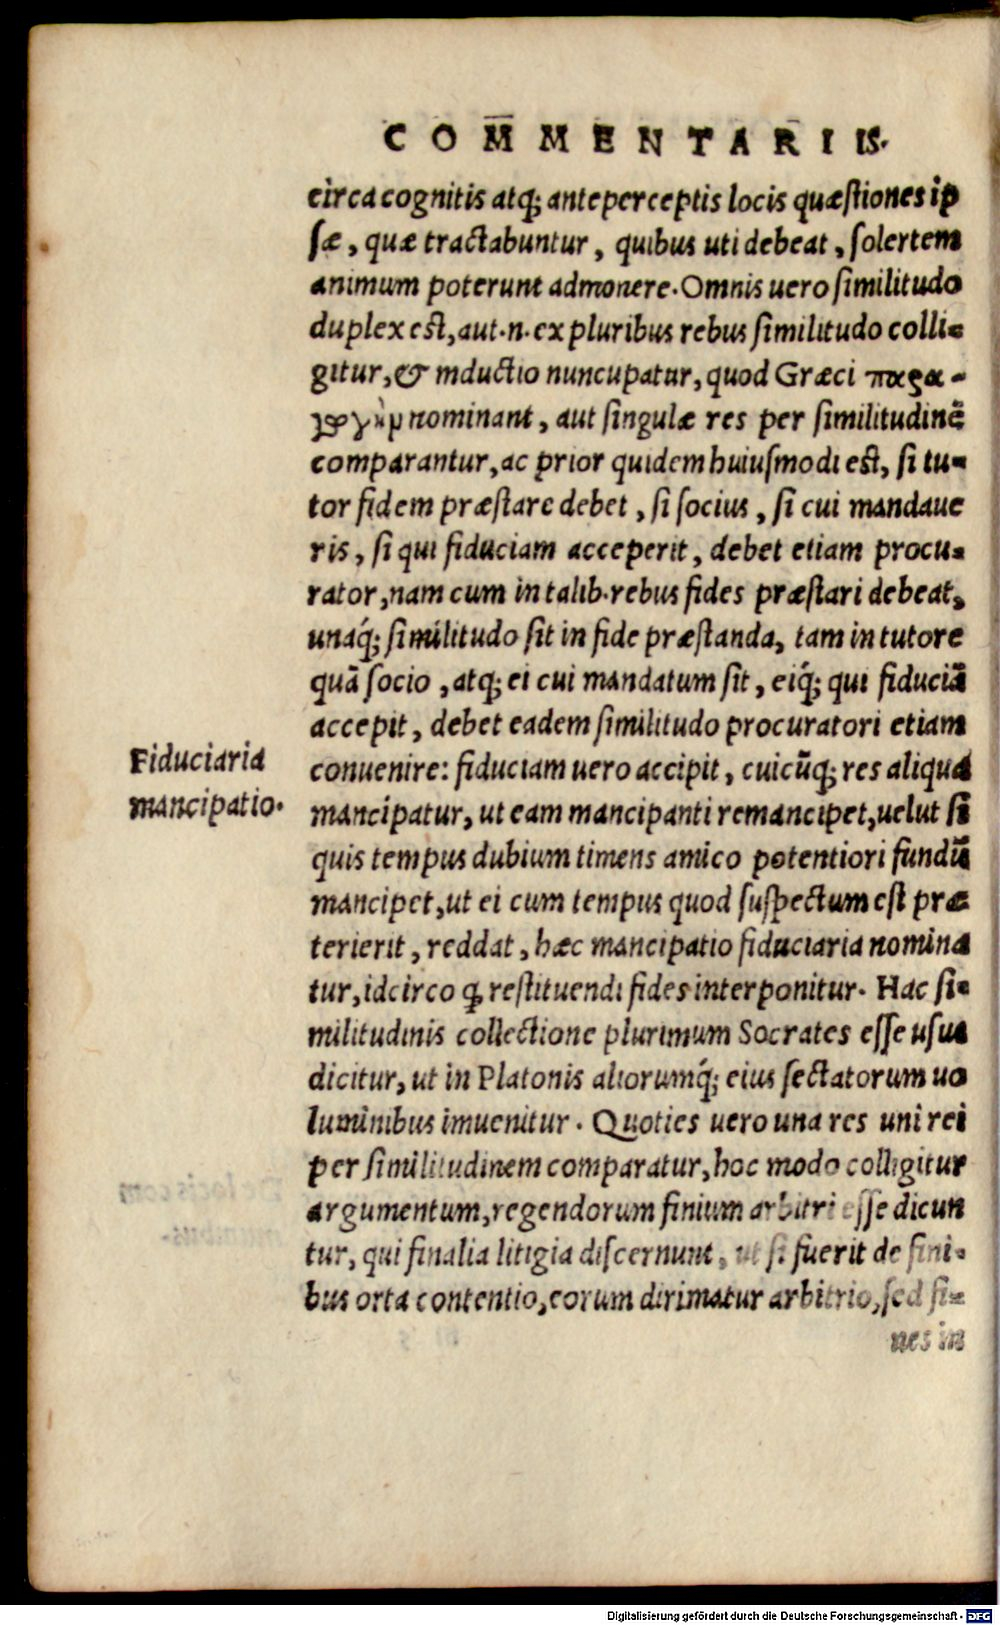 COMMENTARIIS.
circa cognitis atq; anteperceptis locis quæstiones ip
sæ, quæ tractabuntur, quibus uti debeat, solertem
animum poterunt admonere. Omnis uero similitudo
duplex est, aut .n. ex pluribus rebus similitudo colli-
gitur, & inductio nuncupatur, quod Græci παρα-
nominant, aut singulæ res per similitudinē
comparantur, ac prior quidem huiusmodi est, si tu-
tor fidem præstare debet, si socius, si cui mandaue
ris, si qui fiduciam acceperit, debet etiam procu-
rator, nam cum in talib. rebus fides præstari debeat,
unaq́; similitudo sit in fide præstanda, tam in tutore
quā socio, atq; ei cui mandatum sit, eiq́; qui fiduciā
accepit, debet eadem similitudo procuratori etiam
Fiduciaria
mancipatio.
conuenire: fiduciam uero accipit, cuicūq; res aliqua
mancipatur, ut eam mancipanti remancipet, uelut si
quis tempus dubium timens amico potentiori fundū
mancipet, ut ei cum tempus quod suspectum est præ-
terierit, reddat, hæc mancipatio fiduciaria nomina
tur, idcirco ꝙ restituendi fides interponitur. Hac si-
militudinis collectione plurimum Socrates esse usus
dicitur, ut in Platonis aliorumq́; eius sectatorum uo
luminibus inuenitur. Quoties uero una res uni rei
per similitudinem comparatur, hoc modo colligitur
argumentum, regendorum finium arbitri esse dicun
tur, qui finalia litigia discernunt, ut si fuerit de fini-
bus orta contentio, eorum dirimatur arbitrio, sed fi-
nes in
Digitalisierung gefördert durch die Deutsche Forschungsgemeinschaft - DFG